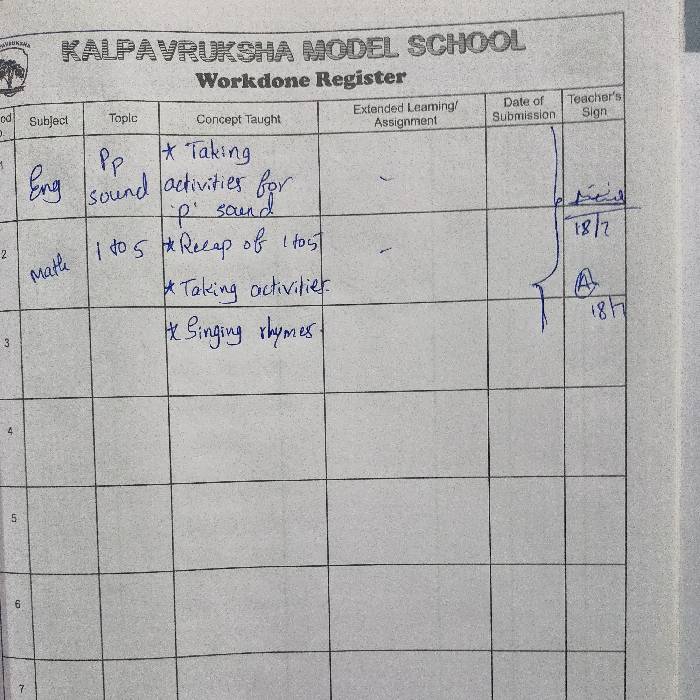 KALPAVRUKSHA MODEL SCHOOL
Workdone Register
Subject Topic Concept Taught Extended Learning/ Assignment Date of Submission Teacher's Sign
1 Eng Pp sound * Taking activities for 'p' sound -
18/7
2 Math 1 to 5 * Recap of 1 to 5 -
* Taking activities.
A
18/7
3 * Singing rhymes.
4
5
6
7